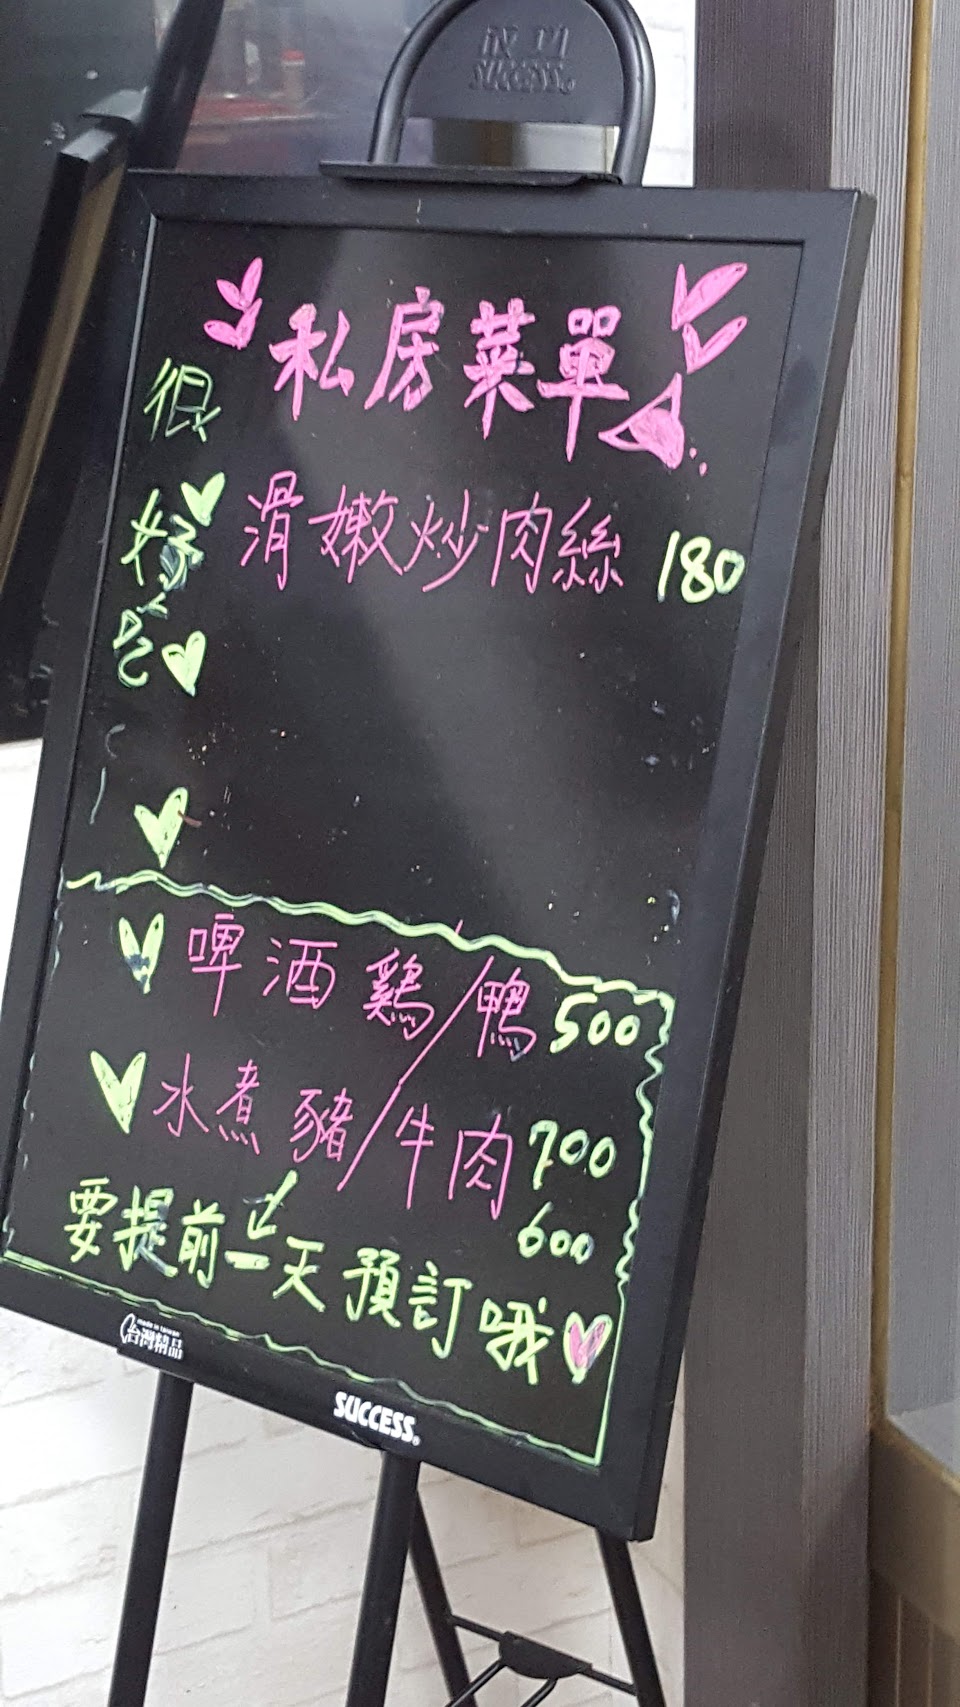 成功
SUCCESS
私房菜單
很好吃
滑嫩炒肉絲 180
啤酒鷄/鴨 500
水煮豬/牛肉 700
600
要提前一天預訂哦
made in taiwan
台灣精品
SUCCESS